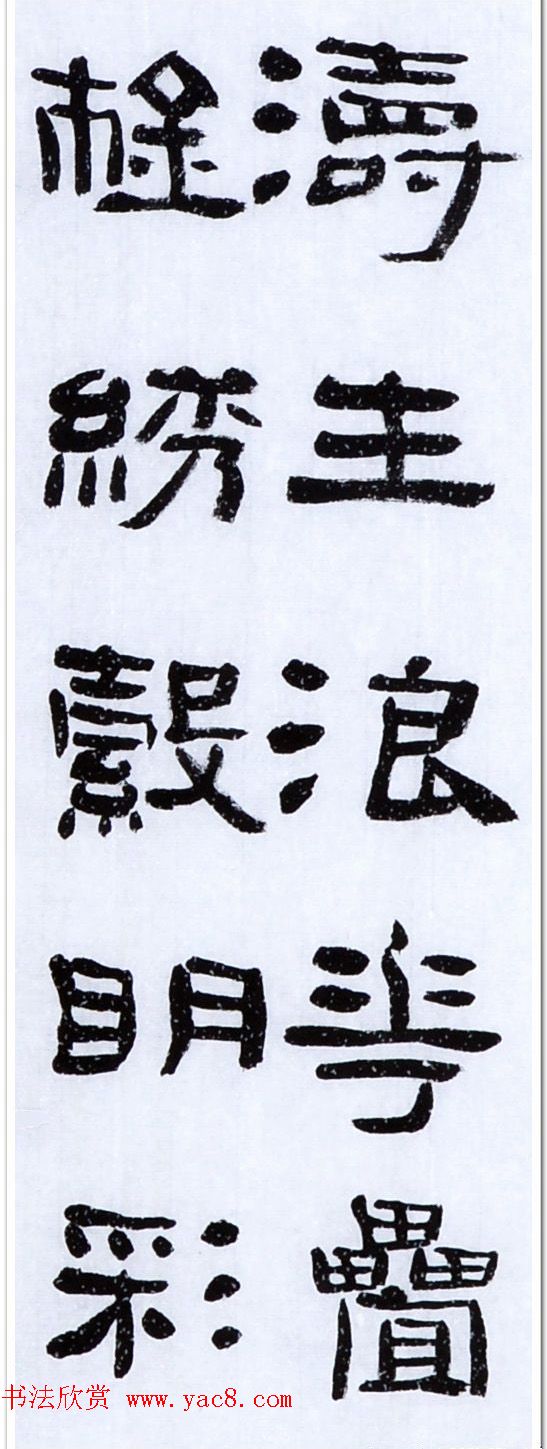 濤生浪花疊
綉縠明彩
书法欣赏 www.yac8.com